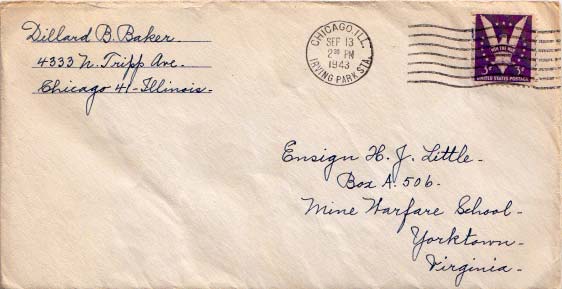 Dillard B. Baker.
4333 N. Tripp Ave.
Chicago 41-Illinois-
CHICAGO, ILL.
SEP 13
2 30 PM
1943
IRVING PARK STA.
WIN THE WAR
3¢ 3¢
UNITED STATES POSTAGE
Ensign H. J. Little-
Box A. 506-
Mine Warfare School-
Yorktown-
Virginia-